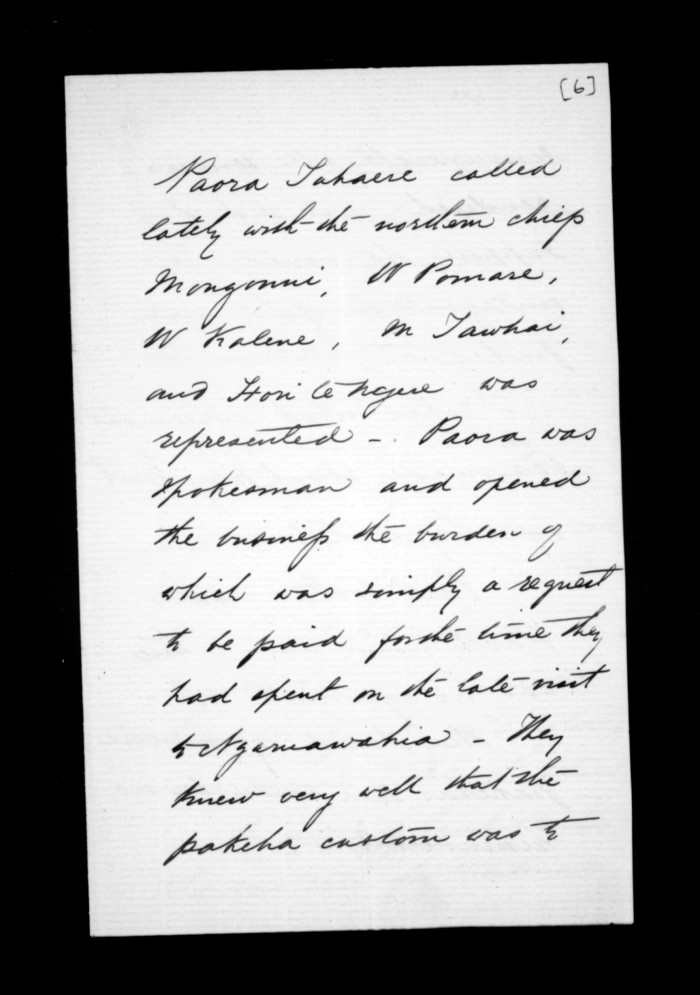 [6]
Paora Tuhaere called
lately with the northern chiefs
Mongonui, W Pomare,
W Katene, M Tawhai,
and Hori te
was
represented - Paora was
spokesman and opened
the business the burden of
which was simply a request
to be paid for the time they
had spent on the late visit
to Ngaruawahia - They
knew very well that the
pakeha custom was to